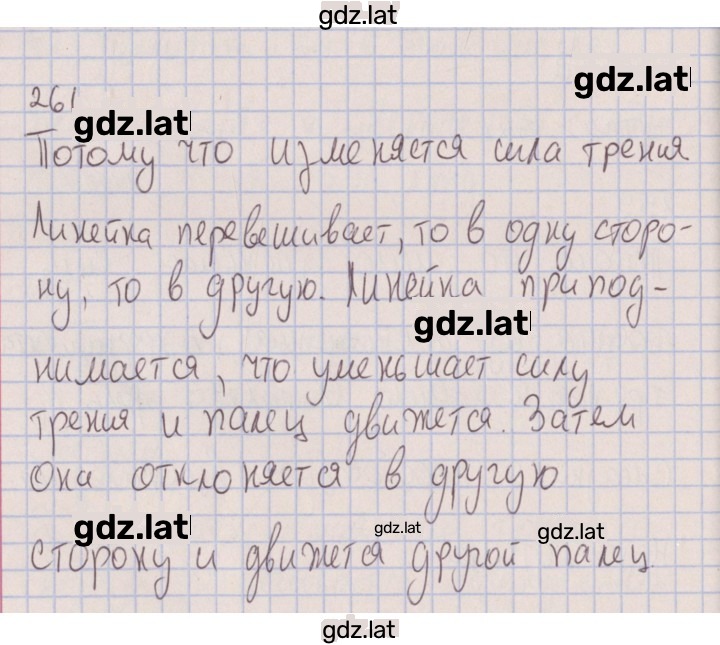 gdz.lat
gdz.lat
261
gdz.lat
Потому что изменяется сила трения
Линейка перевешивает, то в одну сторо-
ну, то в другую. Линейка припод-
gdz.lat
нимается, что уменьшает силу
трения и палец движется. Затем
Она отклоняется в другую
gdz.lat gdz.lat gdz.lat
сторону и движется другой палец.
gdz.lat